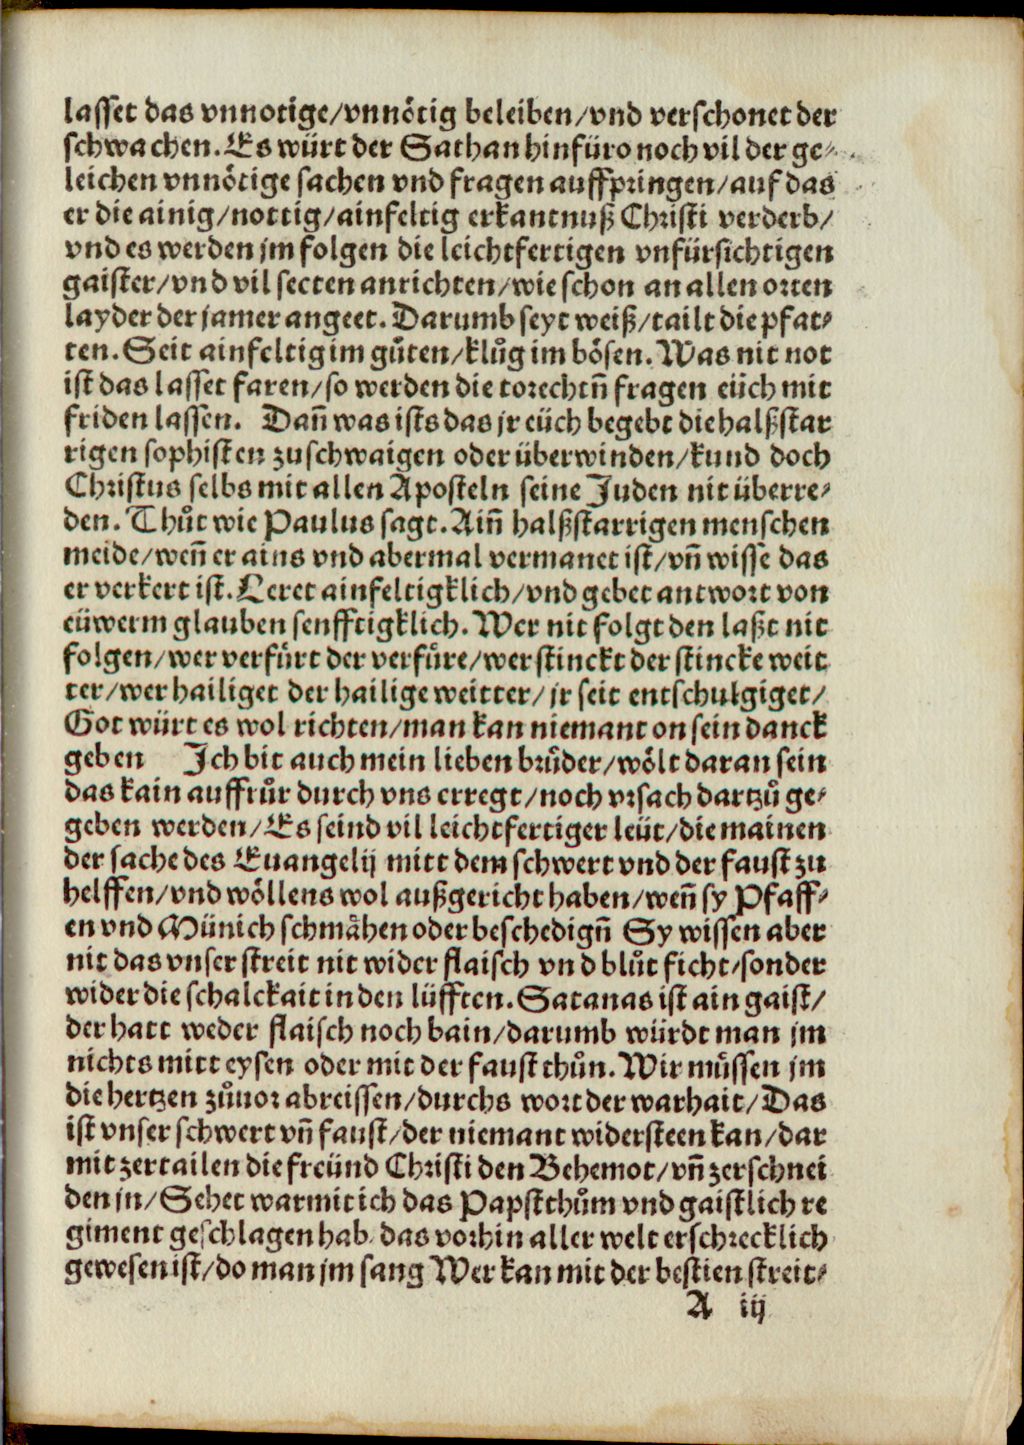 lasset das vnnotige/vnnoͤtig beleiben/vnd verschonet der
schwachen. Es würt der Sathan hinfüro noch vil der ge⸗
leichen vnnoͤtige sachen vnd fragen auffpringen/auf das
er die ainig/nottig/ainfeltig erkantnuß Christi verderb/
vnd es werden jm folgen die leichtfertigen vnfürsichtigen
gaister/vnd vil secten anrichten/wie schon an allen orten
layder der jamer angeet. Darumb seyt weiß/tailt die pfat⸗
ten. Seit ainfeltig im guͤten/kluͦg im boͤsen. Was nit not
ist das lasset faren/so werden die torechtn̄ fragen eüch mit
friden lassen. Dan̄ was ists das jr eüch begebt die halßstar
rigen sophisten zu schwaigen oder überwinden/kund doch
Christus selbs mit allen Aposteln seine Juden nit überre⸗
den. Thuͦt wie Paulus sagt. Ain̄ halßstarrigen menschen
meide/wen̄ er ains vnd abermal vermanet ist/vn̄ wisse das
er verkert ist. Leret ainfeltigklich/vnd gebet antwort von
eüwerm glauben senfftigklich. Wer nit folgt den laßt nit
folgen/wer verfuͤrt der verfuͤre/wer stinckt der stincke weit
ter/wer hailiget der hailige weitter/jr seit entschulgiget/
Got würt es wol richten/man kan niemant on sein danck
geben Ich bit auch mein lieben bruͤder/woͤlt daran sein
das kain auffruͦr durch vns erregt/noch vrsach dartzuͦ ge⸗
geben werden/Es seind vil leichtfertiger leüt/die mainen
der sache des Euangelij mitt dem schwert vnd der faust zu
helffen/vnd woͤllens wol außgericht haben/wen̄ sy Pfaff⸗
en vnd Münich schmaͤhen oder beschedign̄ Sy wissen aber
nit das vnser streit nit wider flaisch vnd bluͦt ficht/sonder
wider die schalckait in den lüfften. Satanas ist ain gaist/
der hatt weder flaisch noch bain/darumb würdt man jm
nichts mitt eysen oder mit der faust thuͦn. Wir muͤssen jm
die hertzen zuͦuor abreissen/durchs wort der warhait/Das
ist vnser schwert vn̄ faust/der niemant widersteen kan/dar
mit zertailen die freünd Christi den Behemot/vn̄ zerschnei
den jn/Sehet warmit ich das Papstthuͦm vnd gaistlich re
giment geschlagen hab/das vorhin aller welt erschrecklich
gewesen ist/do man jm sang Wer kan mit der bestien streit⸗
A iij